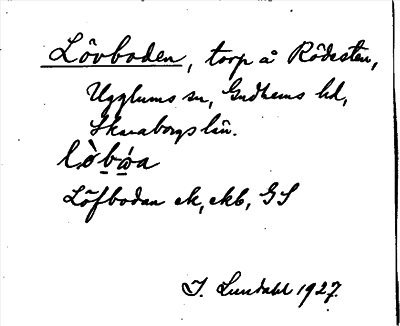 Lövboden, torp å Rödesten,
Ugglums sn, Gudhems hd,
Skaraborgs län.
Löfbodan ek, ekb, GS
I. Lundahl 1927.